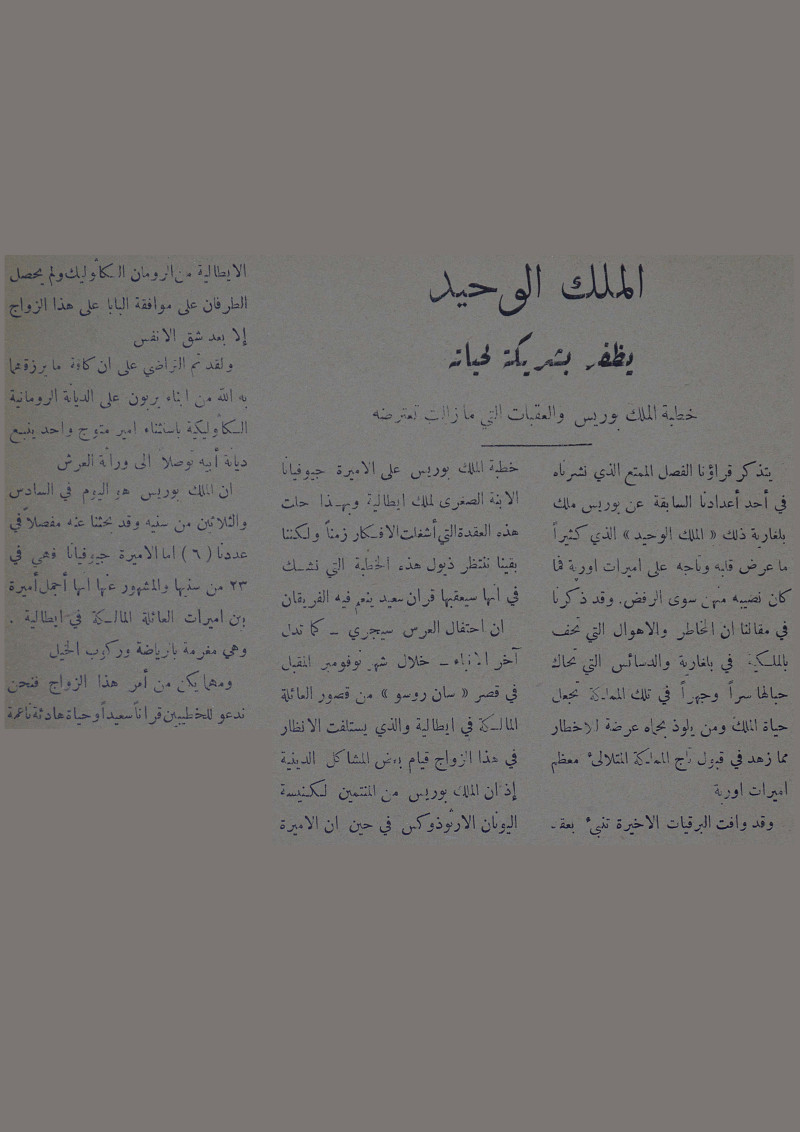 الملك الوحيد
يظفر بشريكة لحياته
خطبة الملك بوريس والعقبات التي ما زالت تعترضه
يتذكر قراؤنا الفصل الممتع الذي نشرناه
في أحد أعدادنا السابقة عن بوريس ملك
بلغارية ذلك « الملك الوحيد » الذي كثيراً
ما عرض قلبه وتاجه على اميرات اوربة فما
كان نصيبه منهن سوى الرفض. وقد ذكرنا
في مقالنا ان المخاطر والاهوال التي تحف
بالملكية في بلغارية والدسائس التي تحاك
حبالها سراً وجهراً في تلك المملكة تجعل
حياة الملك ومن يلوذ بحماه عرضة للاخطار
مما زهد في قبول تاج المملكة المتلالىء معظم
اميرات اوربة
وقد وافت البرقيات الاخيرة تنبىء بعقد
خطبة الملك بوريس على الاميرة جيوفيانا
الابنة الصغرى لملك ايطالية وبهذا حلت
هذه العقدة التي أشغلت الافكار زمناً ولكننا
بقينا ننتظر ذيول هذه الخطبة التي نشك
في انها سيعقبها قران سعيد ينعم فيه الفريقان
ان احتفال العرس سيجري ــ كما تدل
آخر الانباء ــ خلال شهر نوفومبر المقبل
في قصر « سان روسو » من قصور العائلة
المالكة في ايطالية والذي يستلفت الانظار
في هذا الزواج قيام بعض المشاكل الدينية
إذ ان الملك بوريس من المنتمين لكنيسة
اليونان الارثوذوكس في حين ان الاميرة
الايطالية من الرومان الكاثوليك ولم يحصل
الطرفان على موافقة البابا على هذا الزواج
إلا بعد شق الانفس
ولقد تم التراضي على ان كافة ما يرزقهما
به الله من ابناء يربون على الديانة الرومانية
الكاثوليكية باستثناء امير متوج واحد يتبع
ديانة أبيه توصلاً الى وراثة العرش
ان الملك بوريس هو اليوم في السادس
والثلاثين من سنيه وقد بحثنا عنه مفصلاً في
عددنا ( ٦ ) اما الاميرة جيوفيانا فهي في
٢٣ من سنيها والمشهور عنها انها أجمل أميرة
بين اميرات العائلة المالكة في ايطالية .
وهي مغرمة بالرياضة وركوب الخيل
ومهما يكن من أمر هذا الزواج فنحن
ندعو للخطيبين قراناً سعيداً وحياة هادئة ناعمة